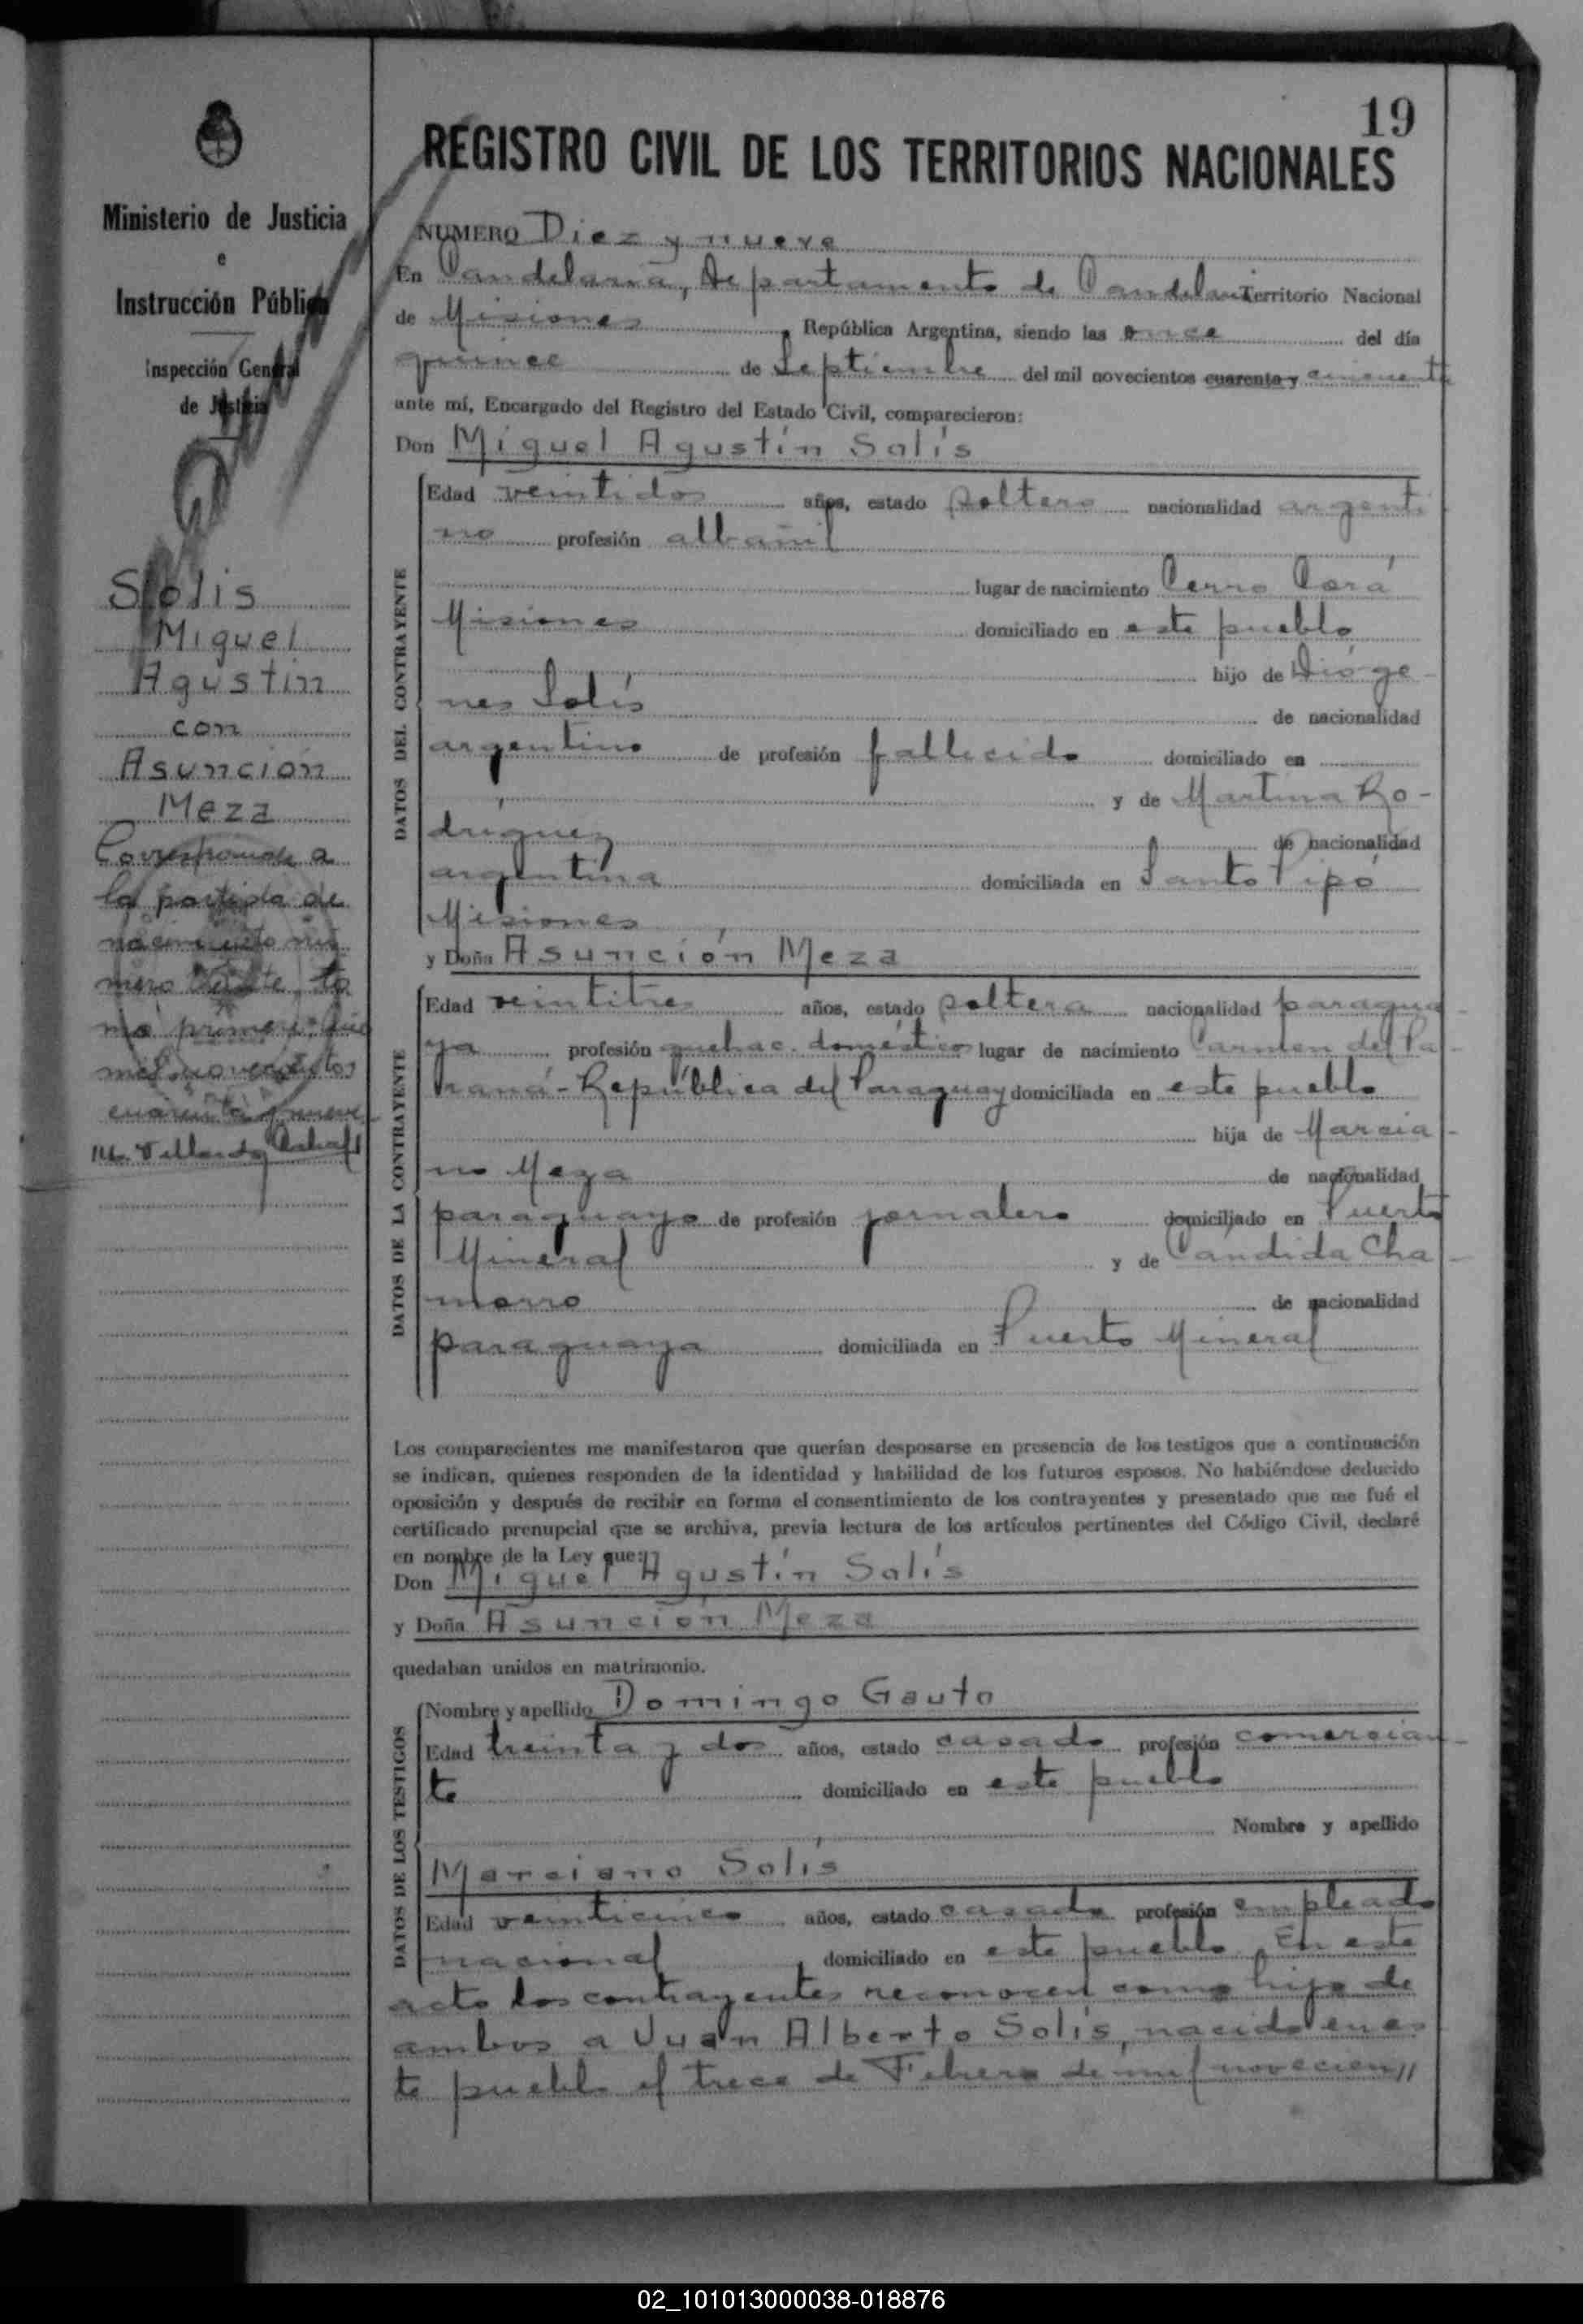 19
REGISTRO CIVIL DE LOS TERRITORIOS NACIONALES
Ministerio de Justicia
e
Instrucción Pública
Inspección General
de Justicia
Solis
Miguel
Agustin
con
Asunción
Meza
Corresponde a
la partida de
nacimiento nú
mero veinte, to
mo primero, año
mil novecientos
cuarenta y nueve
NUMERO Diez y nueve
En Candelaria, Departamento de Candelaria Territorio Nacional
de Misiones, República Argentina, siendo las once del día
quince de Septiembre del mil novecientos cuarenta y cincuenta
ante mí, Encargado del Registro del Estado Civil, comparecieron:
Don Miguel Agustín Solís
DATOS DEL CONTRAYENTE
Edad veintidos años, estado soltero nacionalidad argenti
no profesión albañil
lugar de nacimiento Cerro Corá
Misiones domiciliado en este pueblo
hijo de Dióge-
nes Solís de nacionalidad
argentino de profesión fallecido domiciliado en
y de Martina Ro-
dríguez de nacionalidad
argentina domiciliada en Santo Pipó
Misiones
y Doña Asunción Meza
DATOS DE LA CONTRAYENTE
Edad veintitres años, estado soltera nacionalidad paragua-
ya profesión quehac. domésticos lugar de nacimiento Carmen del Pa-
raná-República del Paraguay domiciliada en este pueblo
hija de Marcia-
no Meza de nacionalidad
paraguayo de profesión jornalero domiciliado en Puerto
Mineral y de Cándida Cha-
morro de nacionalidad
paraguaya domiciliada en Puerto Mineral
Los comparecientes me manifestaron que querían desposarse en presencia de los testigos que a continuación
se indican, quienes responden de la identidad y habilidad de los futuros esposos. No habiéndose deducido
oposición y después de recibir en forma el consentimiento de los contrayentes y presentado que me fué el
certificado prenupcial que se archiva, previa lectura de los artículos pertinentes del Código Civil, declaré
en nombre de la Ley que:
Don Miguel Agustín Solís
y Doña Asunción Meza
quedaban unidos en matrimonio.
DATOS DE LOS TESTIGOS
Nombre y apellido Domingo Gauto
Edad treinta y dos años, estado casado profesión comercian-
te domiciliado en este pueblo
Nombre y apellido
Marciano Solís
Edad veinticinco años, estado casado profesión empleado
nacional, domiciliado en este pueblo. En este
acto los contrayentes reconocen como hijo de
ambos a Juan Alberto Solís, nacido en es
te pueblo el trece de Febrero de mil novecien//
02_101013000038-018876